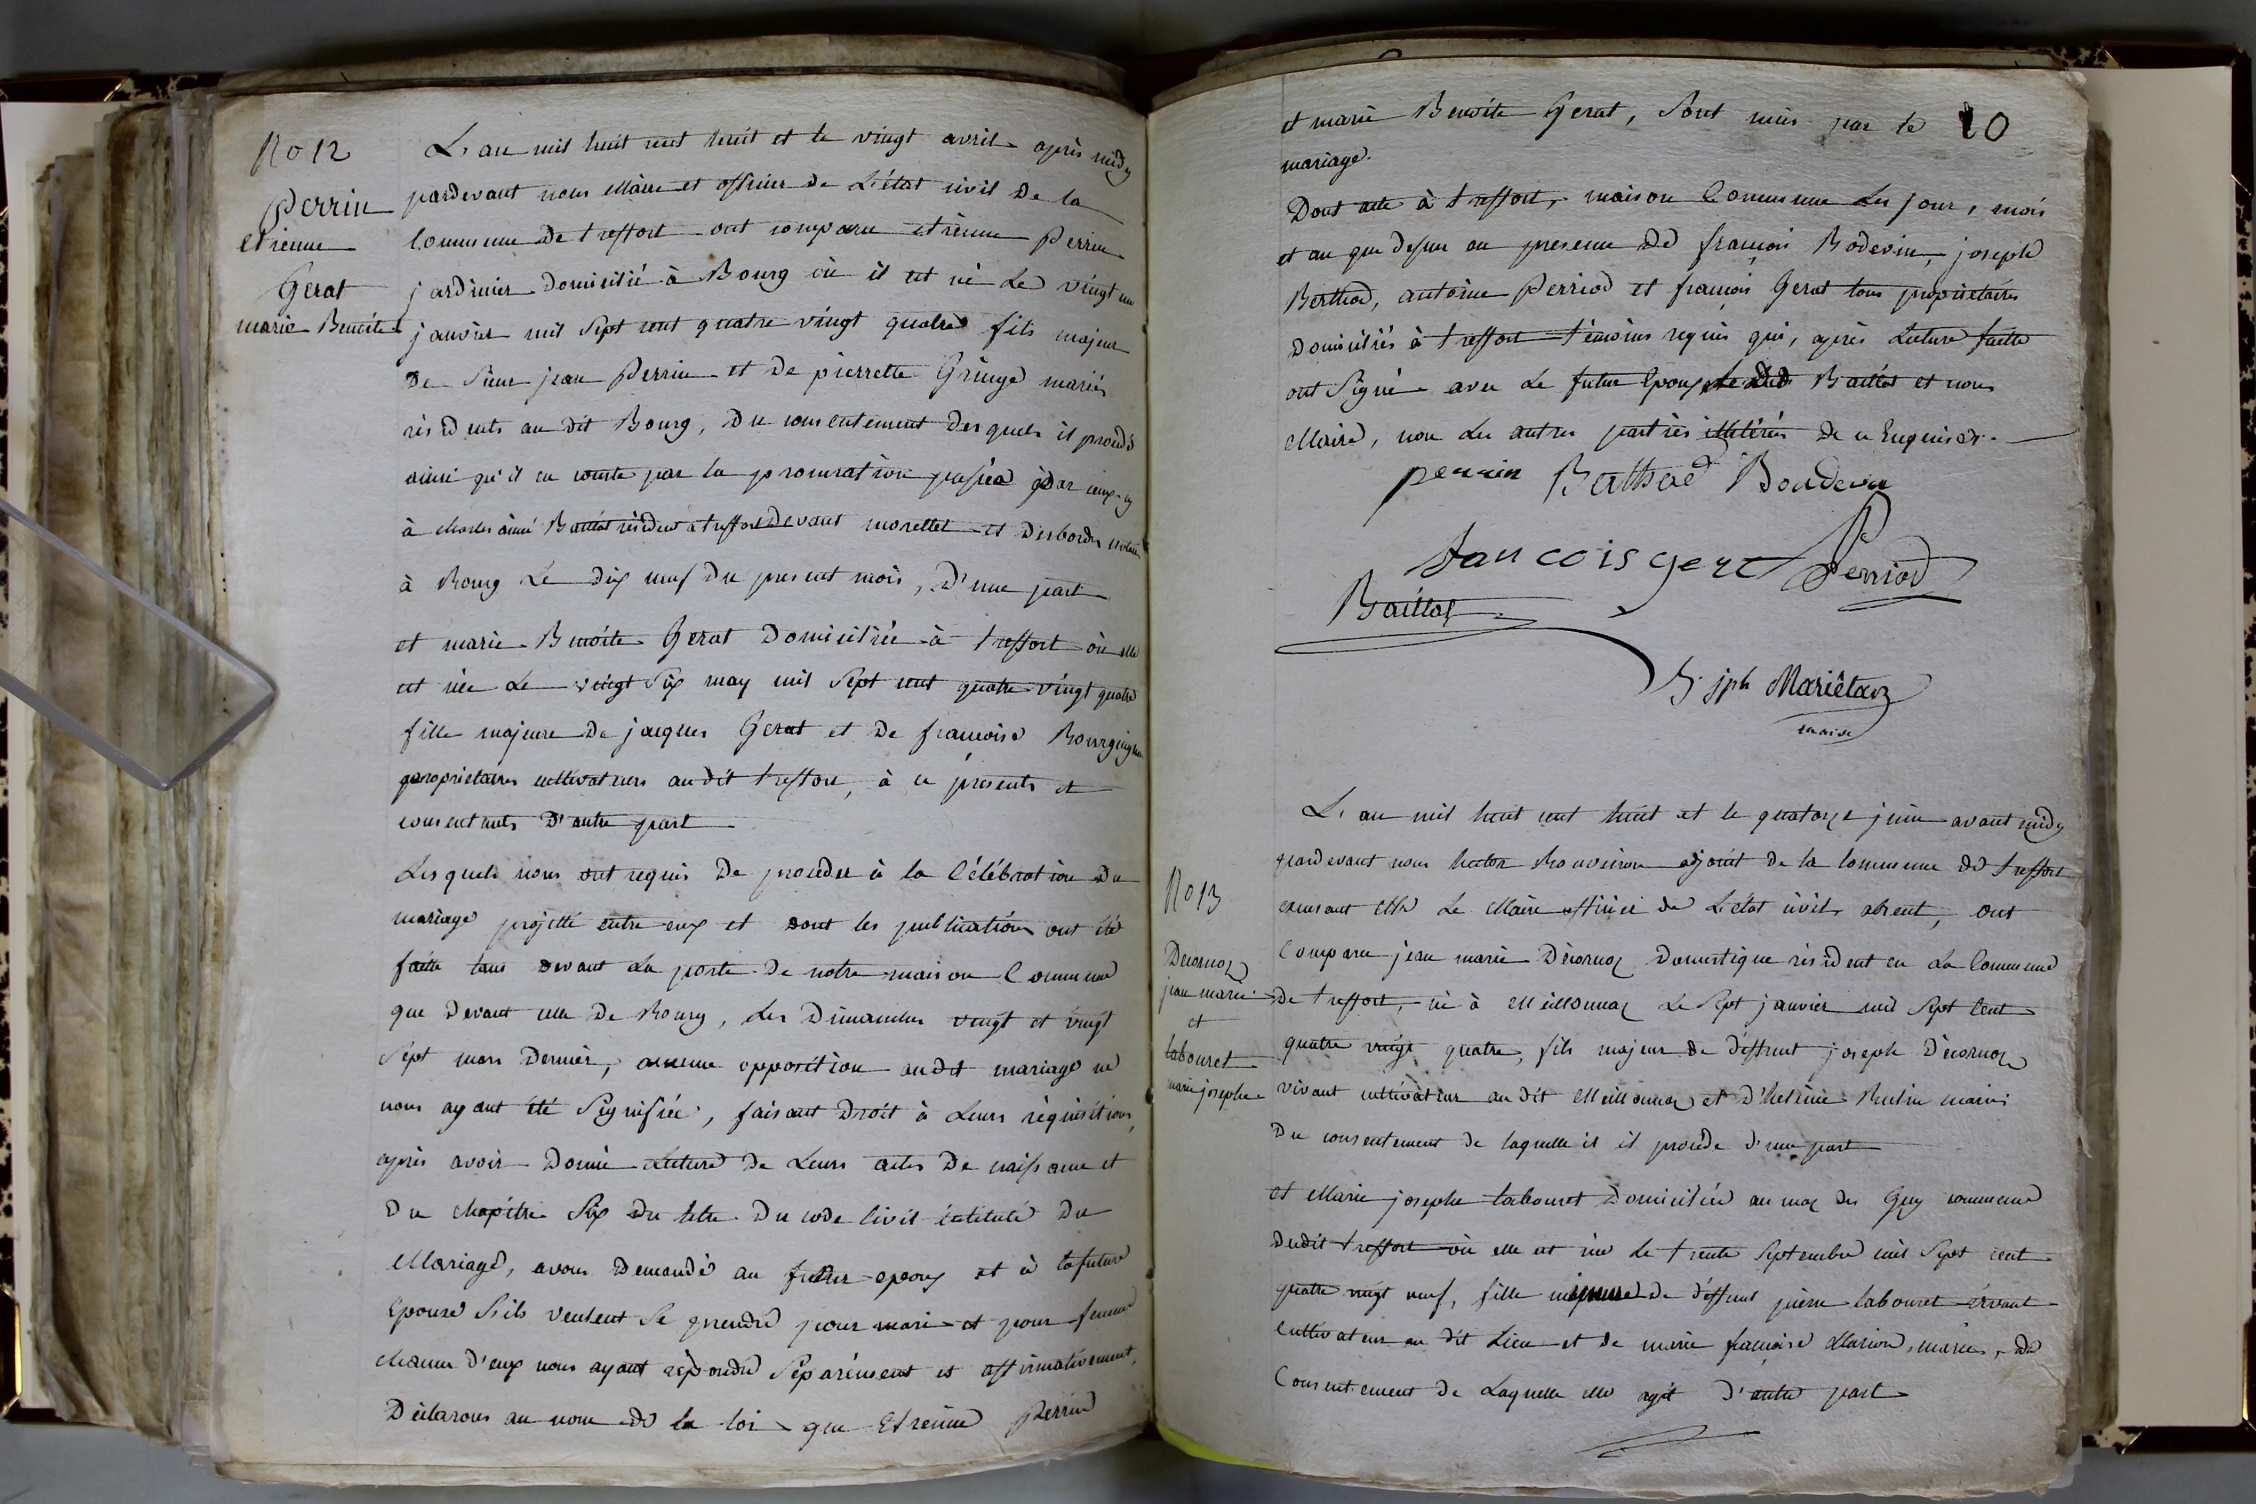 No 12
Perrin
etienne
Gerat
marie Benoite
L'an mil huit cent huit et le vingt avril après midy
pardevant nous Maire et officier de L'état civil De la
Commune De treffort ont comparu etienne Perrin
jardinier Domicilié à Bourg où il est né Le vingt un
janvier mil Sept cent quatre vingt quatre fils majeur
De Sieur jean Perrin et De pierrette Gringe mariés
résidents au dit Bourg, Du consentement desquels il procede
ainsi qu'il en conste par la procuration passée par ceux-cy
à charles aimé Baillat résident à treffort Devant morellet et Desbordes notaires
à Bourg Le dix neuf Du present mois, D'une part
et marie Benoite Gerat Domiciliée à treffort où elle
est née Le vingt Six may mil Sept cent quatre vingt quatre
fille majeure De jacques Gerat et De francoise Bourguignon
proprietaires cultivateurs audit treffort, à ce présents et
consentants D'autre part
Lesquels nous ont requis De proceder à la Célébration Du
mariage projetté entre eux et dont les publications ont été
faites tant devant La porte De notre maison Commune
que Devant celle De Bourg, Les Dimanches vingt et vingt
Sept mars Dernier, aucune opposition audit mariage ne
nous ayant été Signifiée, faisant Droit à Leurs réquisitions,
après avoir Donné Lecture De Leurs actes De naissance et
Du chapitre Six Du titre Du code Civil intitulé Du
Mariage, avons Demandé au futur epoux et à la future
Epouse S'ils veulent Se prendre pour mari et pour femme
chacun D'eux nous ayant répondu Séparément et affirmativement,
Déclarons au nom de la loi que Etienne Perrin
10
et marie Benoite Gerat, Sont unis par le
mariage.
Dont acte à treffort, maison Commune Les jour, mois
et an que dessus en presence De françois Bodevin, joseph
Berthod, antoine Perriod et françois Gerat tous propriétaires
Domiciliés à treffort témoins requis qui, après Lecture faitte
ont Signé avec Le futur Epoux Baillat et nous
Maire, non Les autres parties illitérées De ce Enquises.
perrin Berthod Boudevin
francois gerat Perriod
Baillat
B. jph Mariêtan
maire
No 13
Decornoz
jean marie
et
labouret
marie josephe
L'an mil huit cent huit et le quatorze juin avant midy
pardevant nous adjoint de la Commune de treffort
exercant Le Maire officier de L'état civil absent, ont
Comparu jean marie Décornoz Domestique résident en La Commune
de treffort, né à Meillonnaz Le Sept janvier mil Sept Cent
quatre vingt quatre, fils majeur de deffunt joseph Décornoz
vivant cultivateur au dit Meillonnaz et mariés
Du consentement de laquelle il procède d'une part
et Marie josephe labouret Domiciliée au maz des Guy commune
dudit treffort où elle est née le trente Septembre mil Sept cent
quatre vingt neuf, fille mineure de deffunt pierre labouret vivant
Cultivateur au dit Lieu et de marie françoise Marion, mariés, du
Consentement de Laquelle elle agit D'autre part